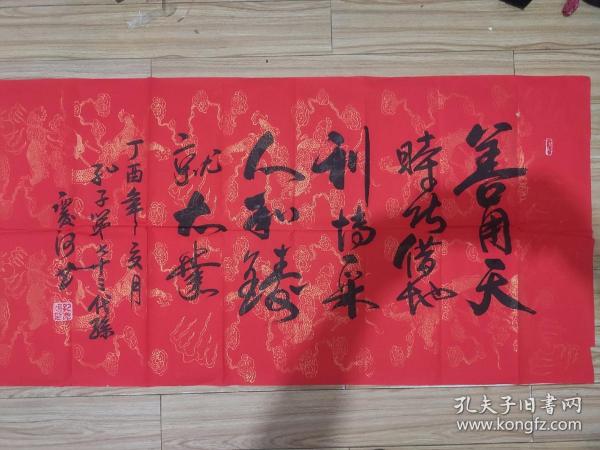 善用天
時巧借地
利揚采
人和鑄
就大業
丁酉年亥月
孔子第七十三代孫
慶河書
孔夫子旧书网
www.kongfz.com